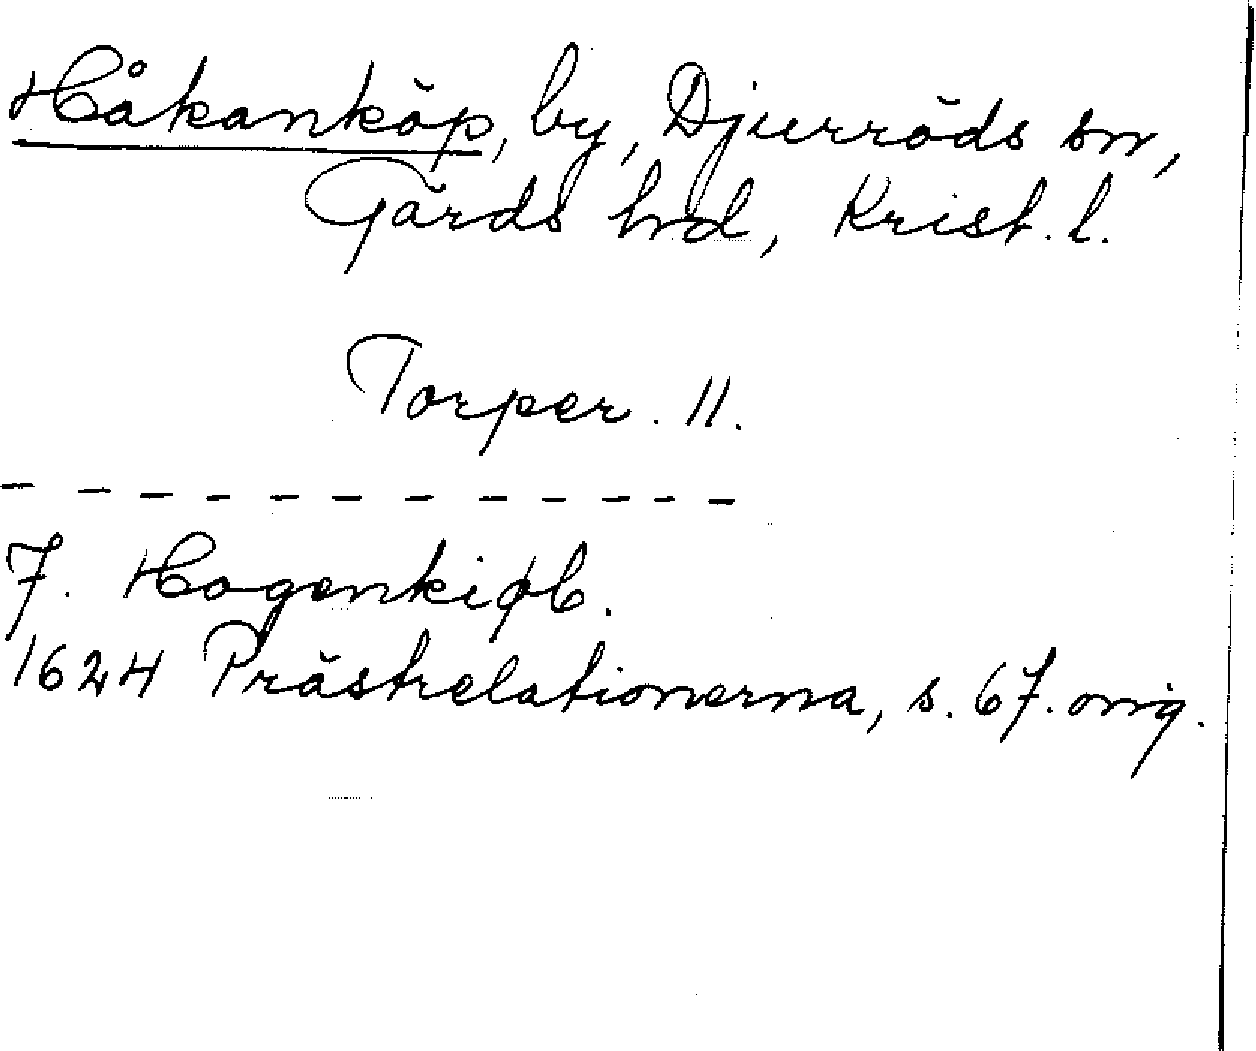 Håkanköp, by, Djurröds sn,
Gärds hrd, Krist. l.
Torper. 11.
7. Hogenkiøb.
1624 Prästrelationerna, s. 67. orig.